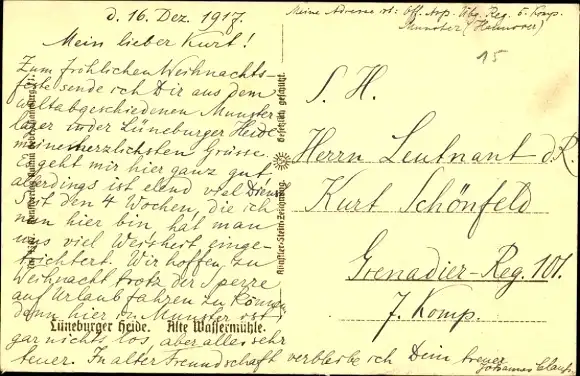 d. 16. Dez. 1917.
Mein lieber Kurt!
Zum fröhlichen Weihnachts-
feste sende ich Dir aus dem
weltabgeschiedenen Munster
lager in der Lüneburger Heide
meine herzlichsten Grüsse.
Es geht mir hier ganz gut
allerdings ist elend viel Dienst
Seit den 4 Wochen, die ich
nun hier bin, hat man
uns viel Weisheit einge-
trichtert. Wir hoffen, zu
Weihnacht trotz der Sperre
auf Urlaub fahren zu können
denn hier in Munster ist
gar nichts los, aber alles sehr
teuer. In alter Freundschaft verbleibe ich Dein treuer
Johannes
Lüneburger Heide. Alte Wassermühle.
Künstler-Stein-Zeichnung.
Gesetzlich geschützt.
Meine Adresse ist: Off. Asp. Übg. Reg. 5. Komp.
Munster (Hannover)
15
S. H.
Herrn Leutnant d. R.
Kurt Schönfeld
Grenadier-Reg. 101.
7. Komp.